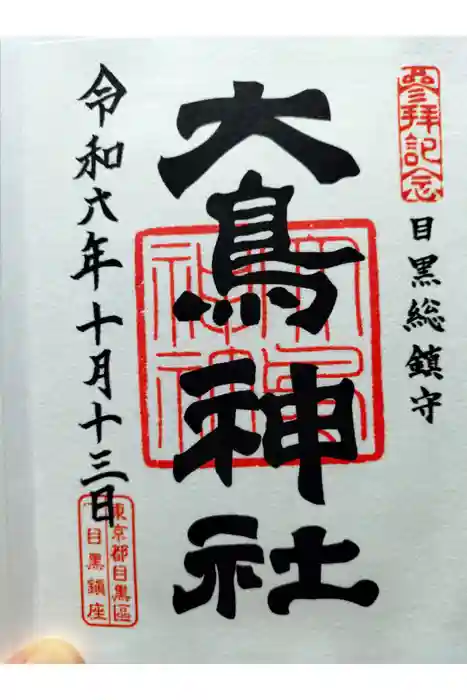 參拜記念
目黒総鎮守
大鳥神社
令和六年十月十三日
東京都目黒區
目黒鎮座